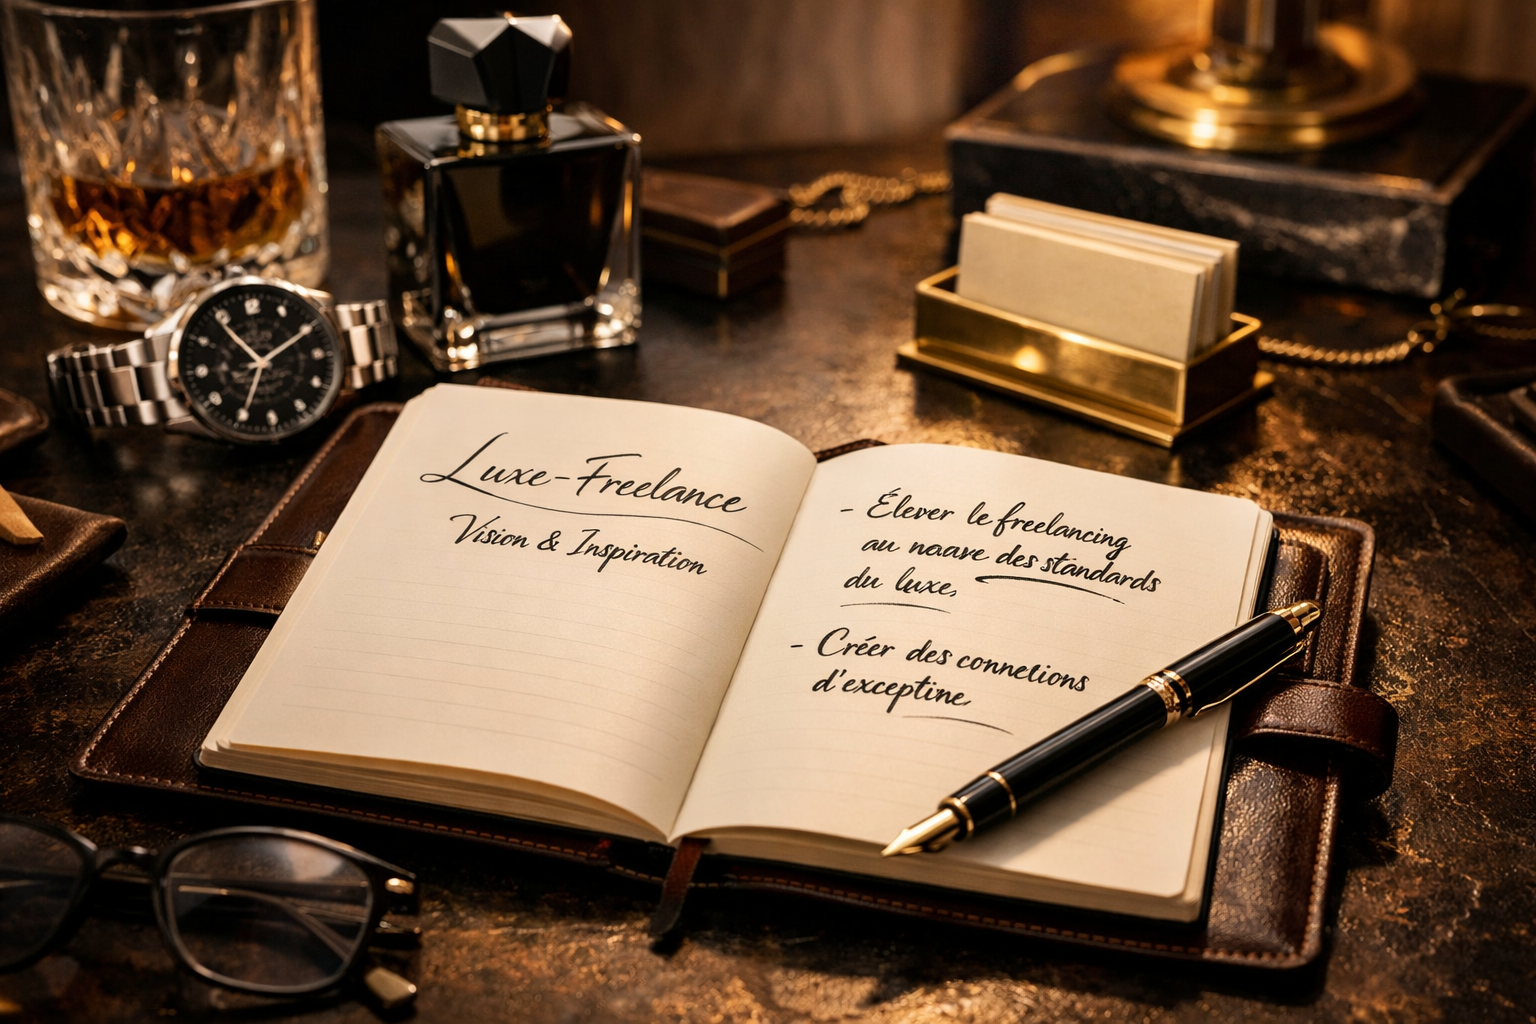 Luxe-Freelance
Vision & Inspiration
- Élever le freelancing
au naave des standards
du luxe.
- Créer des connetions
d'exceptine.